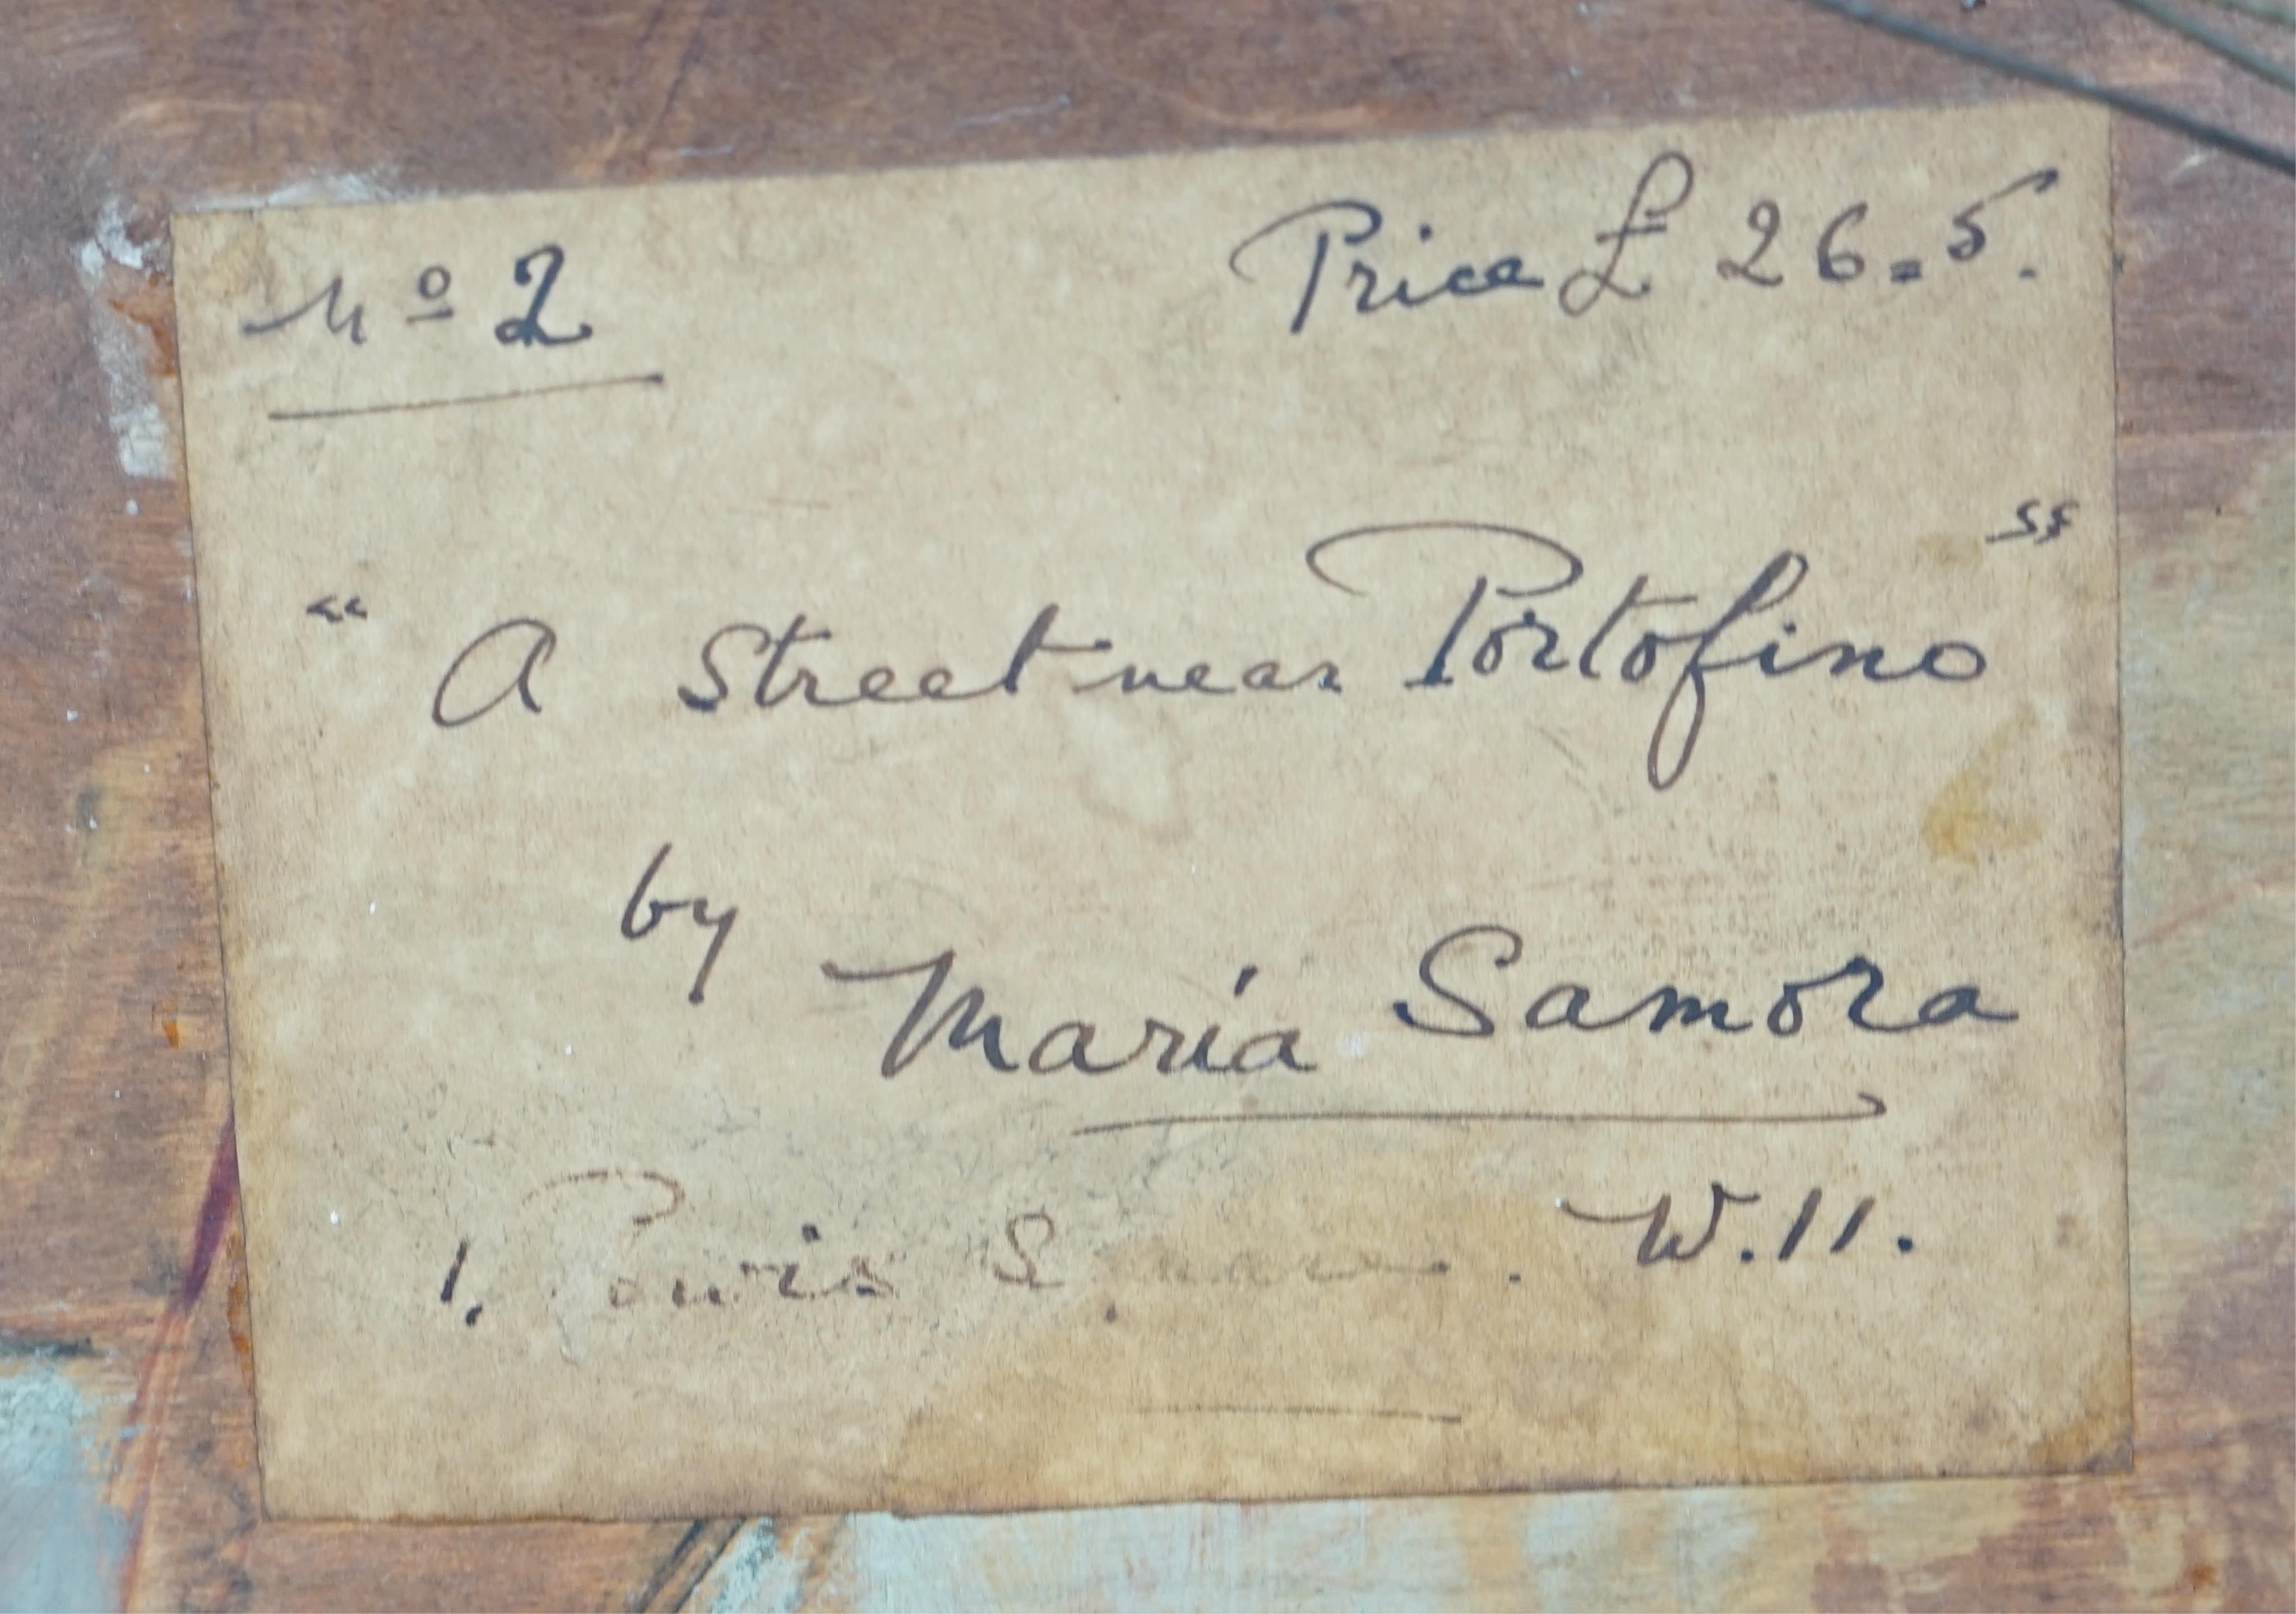 Nº 2 Price £ 26.5.
"A Street near Portofino"
by
María Samora
1, Powis Square. W.11.